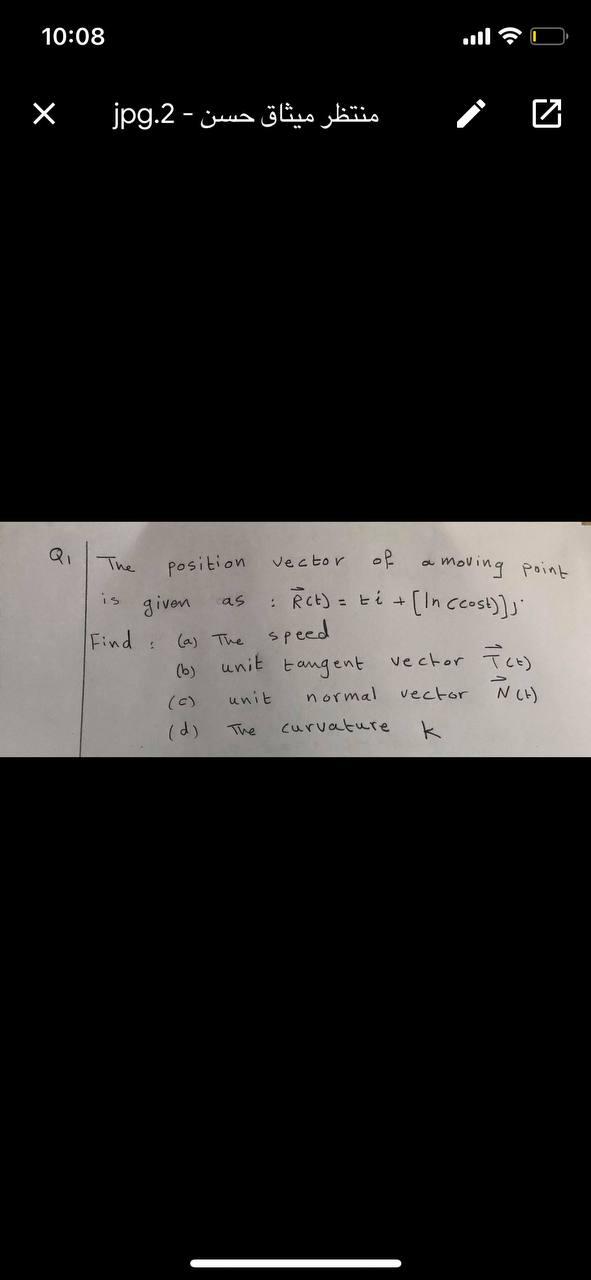 10:08
منتظر ميثاق حسن - 2.jpg
Q1 The position vector of a moving point
is given as : R⃗(t) = ti + [ln(cost)]j
Find : (a) The speed
(b) unit tangent vector T⃗(t)
(c) unit normal vector N⃗(t)
(d) The curvature k